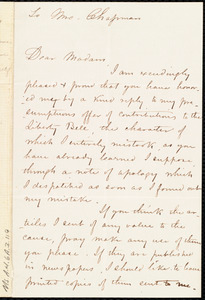 To Mrs. Chapman
Dear Madam,
I am exceedingly
pleased & proud that you have honor-
ed me by a kind reply to my pre-
sumptuous offer of contributions to the
Liberty Bell, the character of
which I entirely mistook, as you
have already learned I suppose
through a note of apology which
I despatched as soon as I found out
my mistake.
If you think the ar-
ticles I sent of any value to the
cause, pray make any use of them
you please. If they are published
in newspapers, I should like to have
printed copies of them sent to me.
Ms. A.9.2